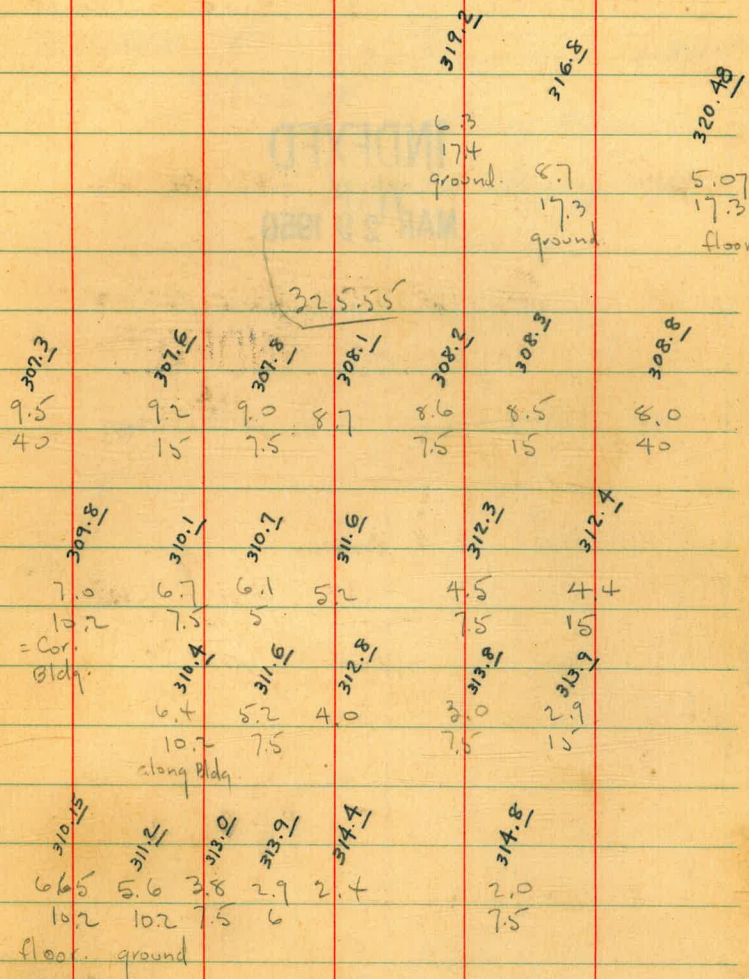 319.2 316.8 320.48
6.3 8.7 5.07
17.4 17.3 17.3
ground. ground floor
325.55
307.3 307.6 307.8 308.1 308.2 308.3 308.8
9.5 9.2 9.0 8.7 8.6 8.5 8.0
40 15 7.5 7.5 15 40
309.8 310.1 310.7 311.6 312.3 312.4
7.0 6.7 6.1 5.2 4.5 4.4
10.2 7.5 5 7.5 15
= Cor.
Bldg.
310.4 311.6 312.8 313.8 313.9
6.4 5.2 4.0 3.0 2.9
10.2 7.5 7.5 15
along Bldg
310.15 311.2 313.0 313.9 314.4 314.8
6.65 5.6 3.8 2.9 2.4 2.0
10.2 10.2 7.5 6 7.5
floor. ground